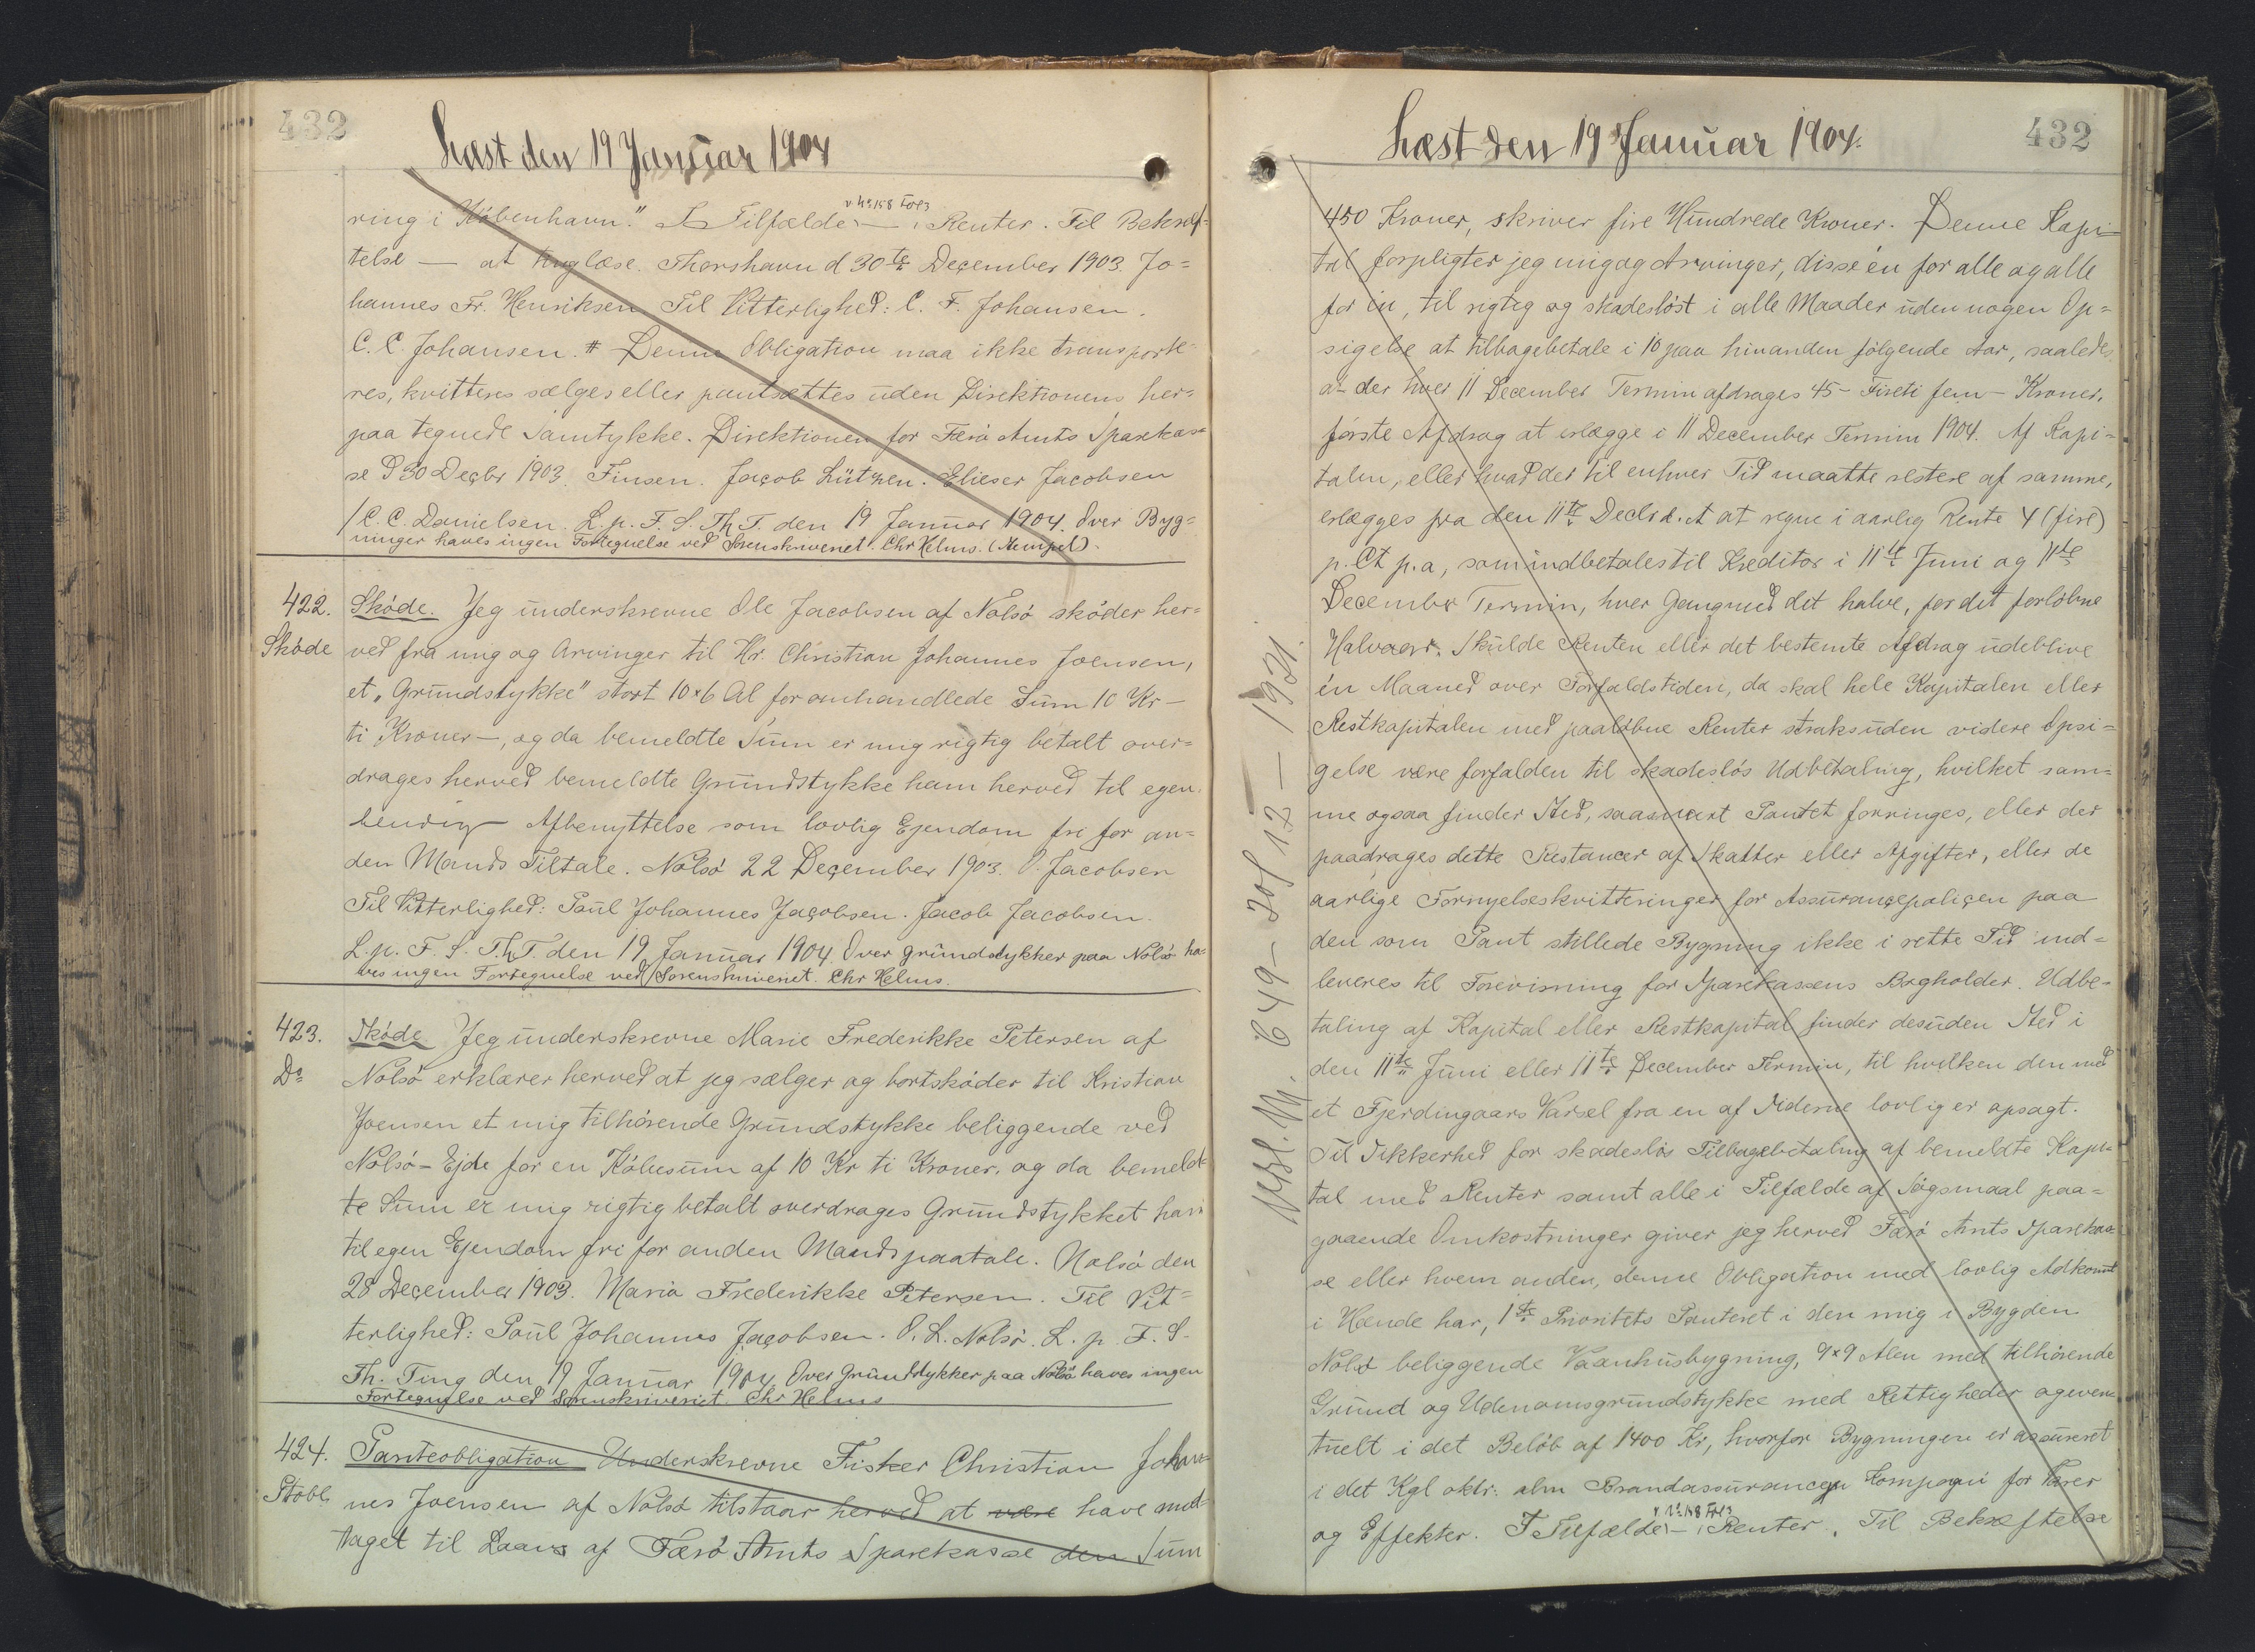 432
Læst den 19 Januar 1904
v. No 158 Fol 3
ring i København." I Tilfælde — Renter. Til Bekræf=
telse — at tinglæse. Thorshavn d 30te December 1903. Jo=
hannes Fr. Henriksen Til Vitterlighed: C. F. Johansen.
C. C. Johansen. # Denne Obligation maa ikke transporte-
res, kvitteres sælges eller pantsættes uden Direktionens her=
paa tegnede Samtykke. Direktionen for Færø Amts Sparekas=
se d 30 Decbr 1903. Finsen. Jacob Lützen. Elieser Jacobsen
/C. C. Danielsen. L. p. F. S. Th T. den 19 Januar 1904. Over Byg=
ninger haves ingen Fortegnelse ved Sorenskriveriet. Chr Helms. (Stempel).
422. Skøde. Jeg underskrevne Ole Jacobsen af Nolsø skøder her=
Skøde ved fra mig og Arvinger til Hr. Christian Johannes Joensen,
et „Grundstykke" stort 10×6 Al for omhandlede Sum 10 Kr —
ti Kroner —, og da bemeldte Sum er mig rigtig betalt over=
drages herved bemeldte Grundstykke ham herved til egen
Afbenyttelse som lovlig Ejendom fri for an=
den Mands Tiltale. Nolsø 22 December 1903. O. Jacobsen
Til Vitterlighed: Paul Johannes Jacobsen. Jacob Jacobsen.
L. p. F. S. Th T. den 19 Januar 1904. Over Grundstykker paa Nolsø ha-
ves ingen Fortegnelse ved Sorenskriveriet. Chr Helms.
423. Skøde Jeg underskrevne Marie Frederikke Petersen af
Do Nolsø erklærer herved at jeg sælger og bortskøder til Kristian
Joensen et mig tilhørende Grundstykke beliggende ved
Nolsø-Ejde for en Købesum af 10 Kr ti Kroner, og da bemeld-
te Sum er mig rigtig betalt overdrages Grundstykket ham
til egen Ejendom fri for anden Mands paatale. Nolsø den
28 December 1903. Maria Frederikke Petersen. Til Vit=
terlighed: Paul Johannes Jacobsen. O. L. Nolsø. L. p. F. S.
Th. Ting den 19 Januar 1904. Over Grundstykker paa Nolsø haves ingen
Fortegnelse ved Sorenskriveriet. Chr Helms
424. Panteobligation Underskrevne Fisker Christian Johan=
Ptobl. nes Joensen af Nolsø tilstaar herved at være have mod-
taget til Laans af Færø Amts Sparekasse den Sum
Læst den 19 Januar 1904.
432
450 Kroner, skriver fire Hundrede Kroner. Denne Kapi=
tal forpligter jeg mig og Arvinger, disse én for alle og alle
for én, til rigtig og skadesløst i alle Maader uden nogen Op=
sigelse at tilbagebetale i 10 paa hinanden følgende Aar, saaledes
at der hver 11 December Termin afdrages 45 – Fireti fem – Kroner,
første Afdrag at erlægge i 11 December Termin 1904. Af Kapi=
talen, eller hvad der til enhver Tid maatte restere af samme,
erlægges fra den 11te Decbr d. A at regne i aarlig Rente 4 (fire)
p. Ct p. a, som indbetales til Kreditor i 11te Juni og 11te
December Termin, hver Gang med det halve, for det forløbne
Halvaar. Skulde Renten eller det bestemte Afdrag udeblive
én Maaned over Forfaldstiden, da skal hele Kapitalen eller
Restkapitalen med paaløbne Renter straks uden videre Opsi=
gelse være forfalden til skadesløs Udbetaling, hvilket sam=
me ogsaa finder Sted, saasnart Pantet forringes, eller der
paadrages dette Restancer af Skatter eller Afgifter, eller de
aarlige Fornyelseskvitteringer for Assurancepolicen paa
den som Pant stillede Bygning ikke i rette Tid ind=
leveres til Forevisning for Sparekassens Bogholder. Udbe-
taling af Kapital eller Restkapital finder desuden Sted i
den 11te Juni eller 11te December Termin, til hvilken den med
et Fjerdingaars Varsel fra en af Siderne lovlig er opsagt.
Til Sikkerhed for skadesløs Tilbagebetaling af bemeldte Kapi-
tal med Renter samt alle i Tilfælde af Søgsmaal paa=
gaaende Omkostninger giver jeg herved Færø Amts Sparekas-
se eller hvem anden, denne Obligation med lovlig Adkomst
i Hænde har, 1ste Prioritets Panteret i den mig i Bygden
Nolsø beliggende Vaanhusbygning, 9×9 Alen med tilhørende
Grund og Udenomsgrundstykke med Rettigheder og even-
tuelt i det Beløb af 1400 Kr, hvorfor Bygningen er assureret
i det Kgl oktr. alm Brandassurance Kompagni for Varer
v. No 158 Fol 3
og Effekter. I Tilfælde — Renter. Til Bekræftelse
649 – Fol 12 – 1921.